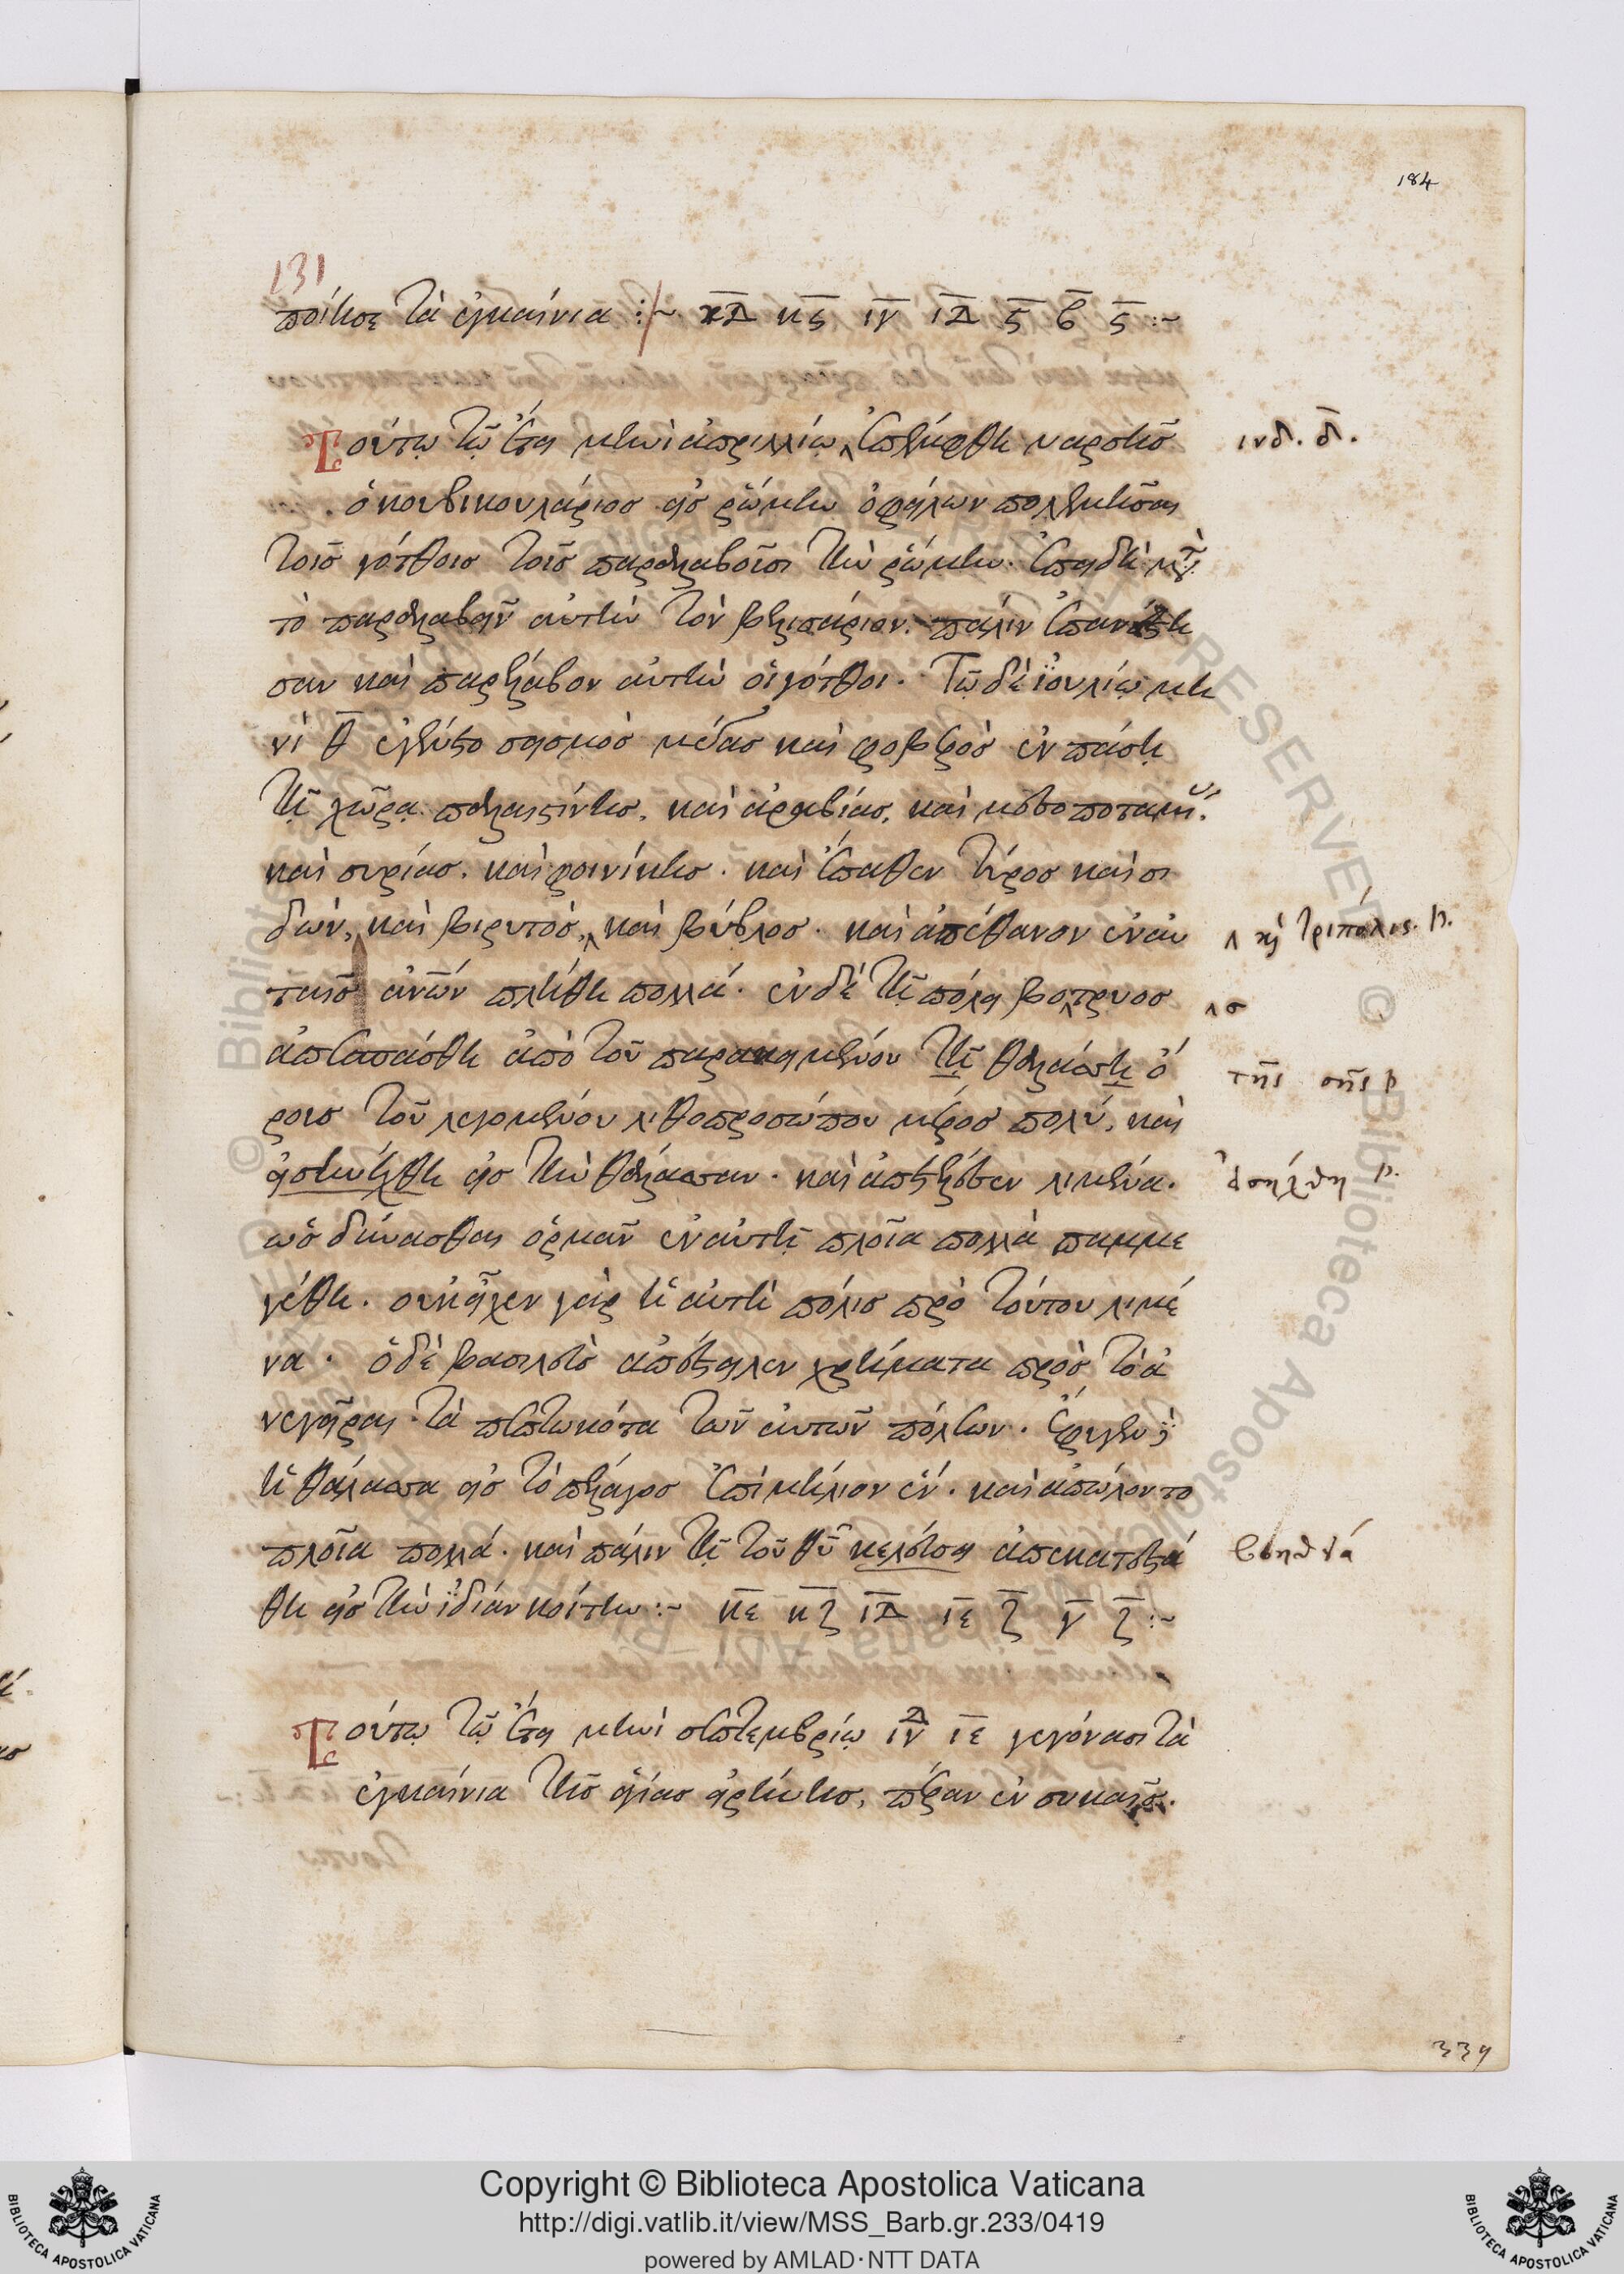 184
131
ποίησε τὰ ἐγκαίνια :~ κδ κς ιγ ιδ ς β ς :~
Τούτῳ τῷ ἔτει μηνὶ ἀπριλλίῳ ἐπέμφθη ναρσῆς
ινδ. δ.
ὁ κουβικουλάριος εἰς ῥώμην ὀφείλων πολεμῆσαι
τοῖς γότθοις τοῖς παραλαβοῦσι τὴν ῥώμην. ἐπειδὴ μετὰ
τὸ παραλαβεῖν αὐτὴν τὸν βελισάριον. πάλιν ἐπανέστη
σαν καὶ παρέλαβον αὐτὴν οἱ γότθοι. Τῷ δὲ ἰουλίῳ μη
νὶ θ ἐγένετο σεισμὸς μέγας καὶ φοβερὸς ἐν πάσῃ
τῇ χώρᾳ παλαιστίνης, καὶ ἀραβίας, καὶ μεσοποταμίας.
καὶ συρίας. καὶ φοινίκης. καὶ ἔπαθεν τύρος καὶ σι
δών, καὶ βιρυτὸς, καὶ βύβλος. καὶ ἀπέθανον ἐν αὐ
καὶ τρίπολις. p.
ταῖς ἀνῶν πλήθη πολλά. ἐν δὲ τῇ πόλει βοτρυος
σ
ἀπεσπάσθη ἀπὸ τοῦ παρακειμένου τῇ θαλάσσῃ ὄ
τῆς σης p
ρους τοῦ λεγομένου λιθοπροσώπου μέρος πολύ, καὶ
εἰσηνέχθη εἰς τὴν θάλασσαν. καὶ ἀπετέλεσεν λιμένα.
p.
ὡς δύνασθαι ὁρμᾶν ἐν αὐτῇ πλοῖα πολλὰ παμμε
γέθη. οὐκ εἶχεν γὰρ ἡ αὐτὴ πόλις πρὸ τούτου λιμέ
να. ὁ δὲ βασιλεὺς ἀπέστειλεν χρήματα πρὸς τὸ ἀ
νεγεῖραι τὰ πεπτωκότα τῶν αὐτῶν πόλεων. ἔφυγεν δὲ
ἡ θάλασσα εἰς τὸ πέλαγος ἐπὶ μήλιον ἕν. καὶ ἀπώλοντο
πλοῖα πολλά. καὶ πάλιν τῇ τοῦ θυ κελεύσει ἀπεκατεστά
θη εἰς τὴν ἰδίαν κοίτην :~ κε κζ ιδ ιε ζ γ ζ :~
Τούτῳ τῷ ἔτει μηνὶ σεπτεμβρίῳ ιν ιε γεγόνασι τὰ
ἐγκαίνια τῆς ἁγίας εἰρήνης, πέραν ἐν συκαῖς.
339
Copyright © Biblioteca Apostolica Vaticana
http://digi.vatlib.it/view/MSS_Barb.gr.233/0419
powered by AMLAD·NTT DATA
BIBLIOTECA APOSTOLICA VATICANA
BIBLIOTECA APOSTOLICA VATICANA